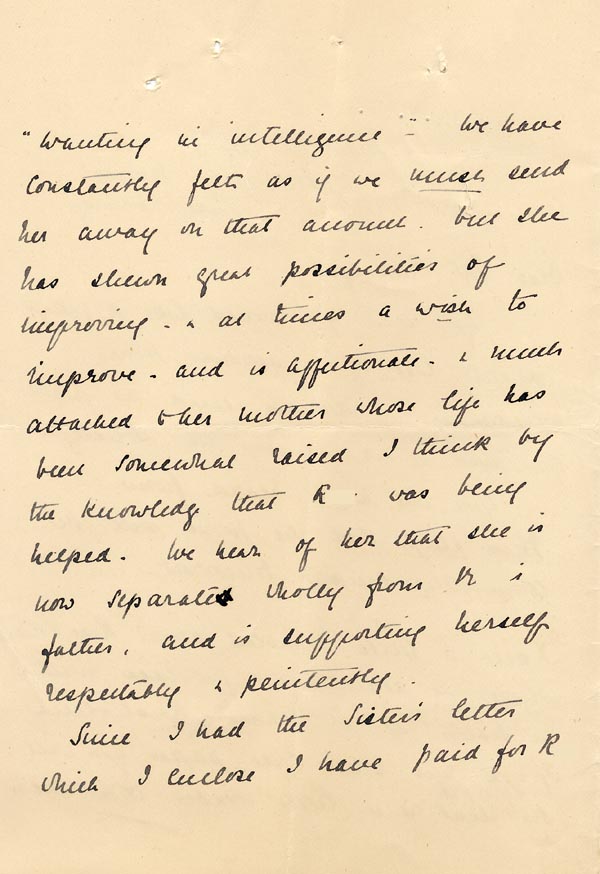 "wanting in intelligence" - We have
constantly felt as if we must send
her away on that account. but she
has shewn great possibilities of
improving - & at times a wish to
improve - and is affectionate - & much
attached to her mother whose life has
been somewhat raised I think by
the knowledge that R. was being
helped. We hear of her that she is
now separated wholly from R's
father, and is supporting herself
respectably & penitently.
Since I had the Sister's letter
which I enclose I have paid for R